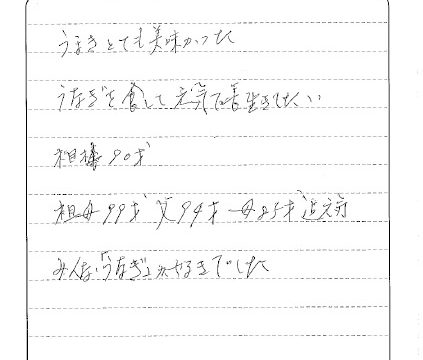 うまきとても美味かった
うなぎを食して元気で長生きしたい
祖 90才
祖母99才 父94才 母85才迄元気
みんな「うなぎ」が好きでした